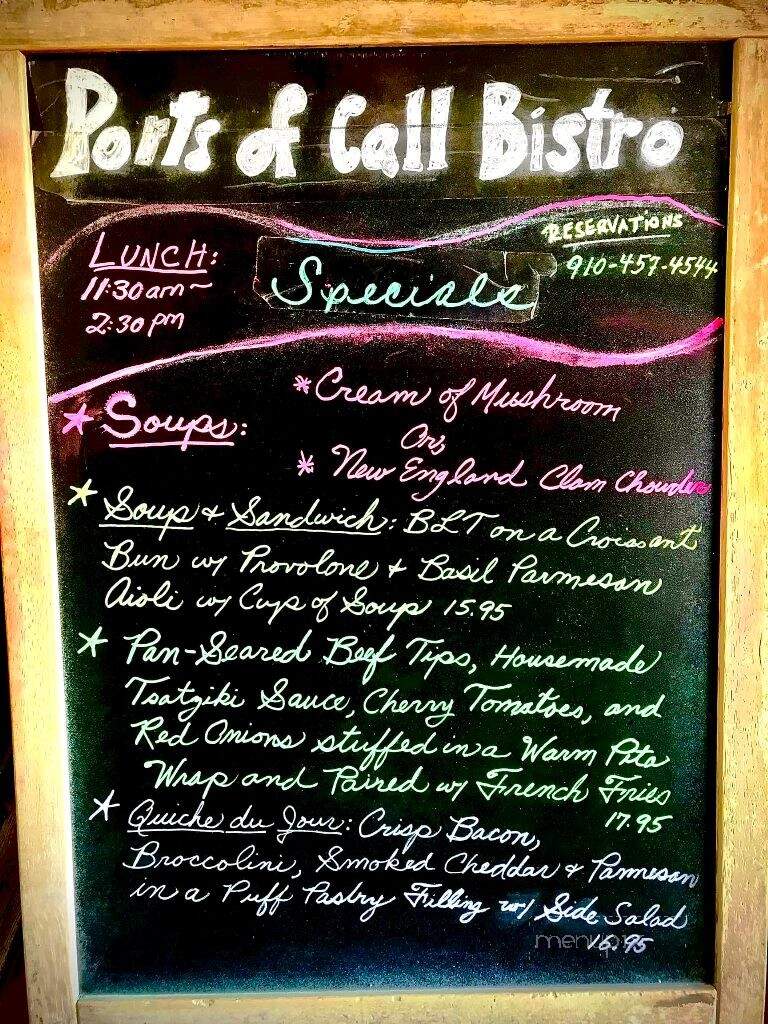 Ports of Call Bistro
RESERVATIONS
910-457-4544
LUNCH:
11:30am~
2:30pm
Specials
* Cream of Mushroom
Or,
* Soups:
* New England Clam Chowder
* Soup & Sandwich: BLT on a Croissant
Bun w/ Provolone & Basil Parmesan
Aioli w/ Cup of Soup 15.95
* Pan-Seared Beef Tips, Housemade
Tsatziki Sauce, Cherry Tomatoes, and
Red Onions stuffed in a Warm Pita
Wrap and Paired w/ French Fries
17.95
* Quiche du Jour: Crisp Bacon,
Broccolini, Smoked Cheddar & Parmesan
in a Puff Pastry Filling w/ Side Salad
16.95